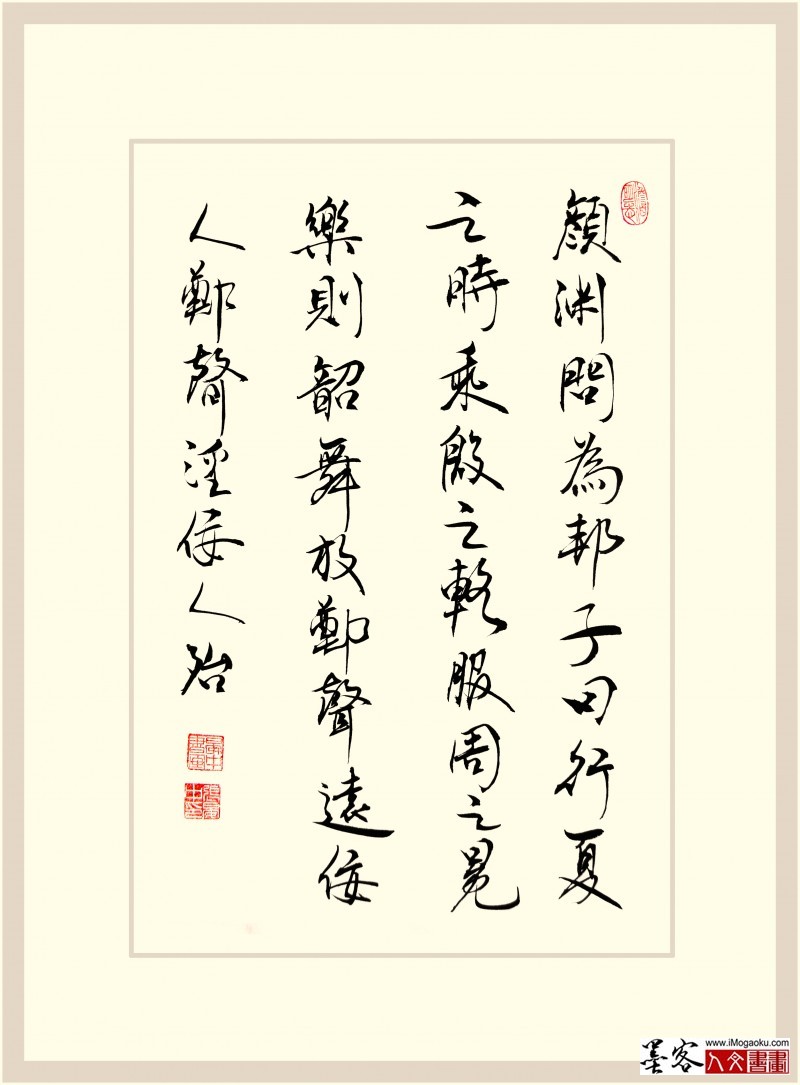 顏渊問為邦子曰行夏
之時乘殷之輅服周之冕
樂則韶舞放鄭聲遠佞
人鄭聲淫佞人殆
www.iMogaoku.com
墨客人文書畫